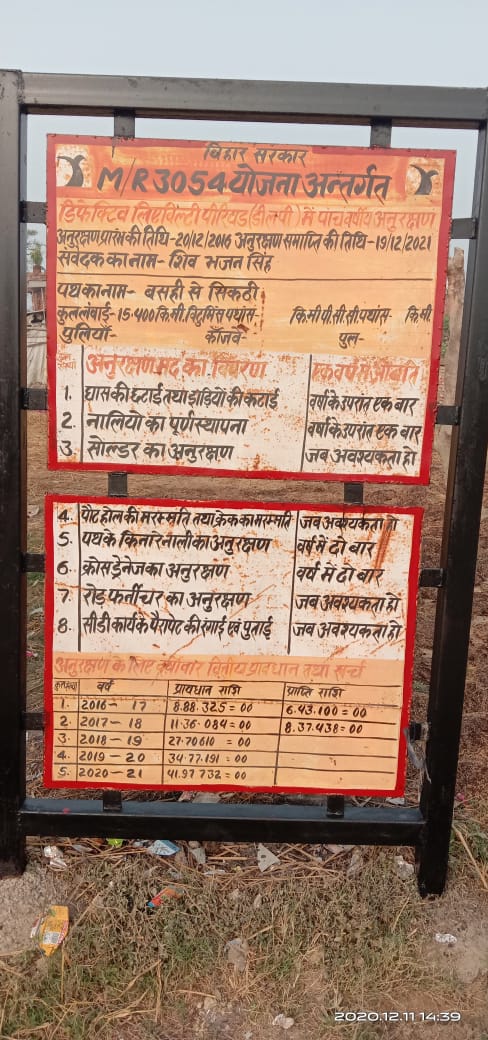 बिहार सरकार
M/R 3054 योजना अन्तर्गत
डिफेक्टिव लिडविल्टी पीरियड (डीलपी) में पांचवर्षीय अनुरक्षण
अनुरक्षण प्रारंभ की तिथि-20/12/2016 अनुरक्षण समाप्ति की तिथि-19/12/2021
संवेदक का नाम- शिव भजन सिंह
पथ का नाम- बसही से सिकठी
कुल लंबाई-15.400 कि.मी. विटुमिंस पथांस- कि.मी पी.सी.सी. पथांस- कि.मी.
पुलिया- कॉजवे- पुल-
अनुरक्षण मद का विवरण एक वर्ष में आवृति
1. घास की छटाई तथा झाडियों की कटाई वर्ष के उपरांत एक बार
2. नालियो का पूर्णस्थापना वर्ष के उपरांत एक बार
3. सोल्डर का अनुरक्षण जब अवश्यकता हो
4. पौट होल की मरम्मति तथा क्रेक का मरम्मति जब अवश्यकता हो
5. पथ के किनारे नाली का अनुरक्षण वर्ष में दो बार
6. क्रोस ड्रेनेज का अनुरक्षण वर्ष में दो बार
7. रोड फर्तीचर का अनुरक्षण जब अवश्यकता हो
8. सीडी कार्य के पैरापेट की रंगाई एवं पुताई जब अवश्यकता हो
अनुरक्षण के लिए वर्षवार वित्तीय प्रावधान तथा खर्च
वर्ष प्रावधान राशि प्राप्ति राशि
1. 2016-17 8.88.325=00 6.43.100=00
2. 2017-18 11.36.084=00 8.37.438=00
3. 2018-19 27.70610 =00
4. 2019-20 34.77.191=00
5. 2020-21 41.97732=00
2020.12.11 14:39